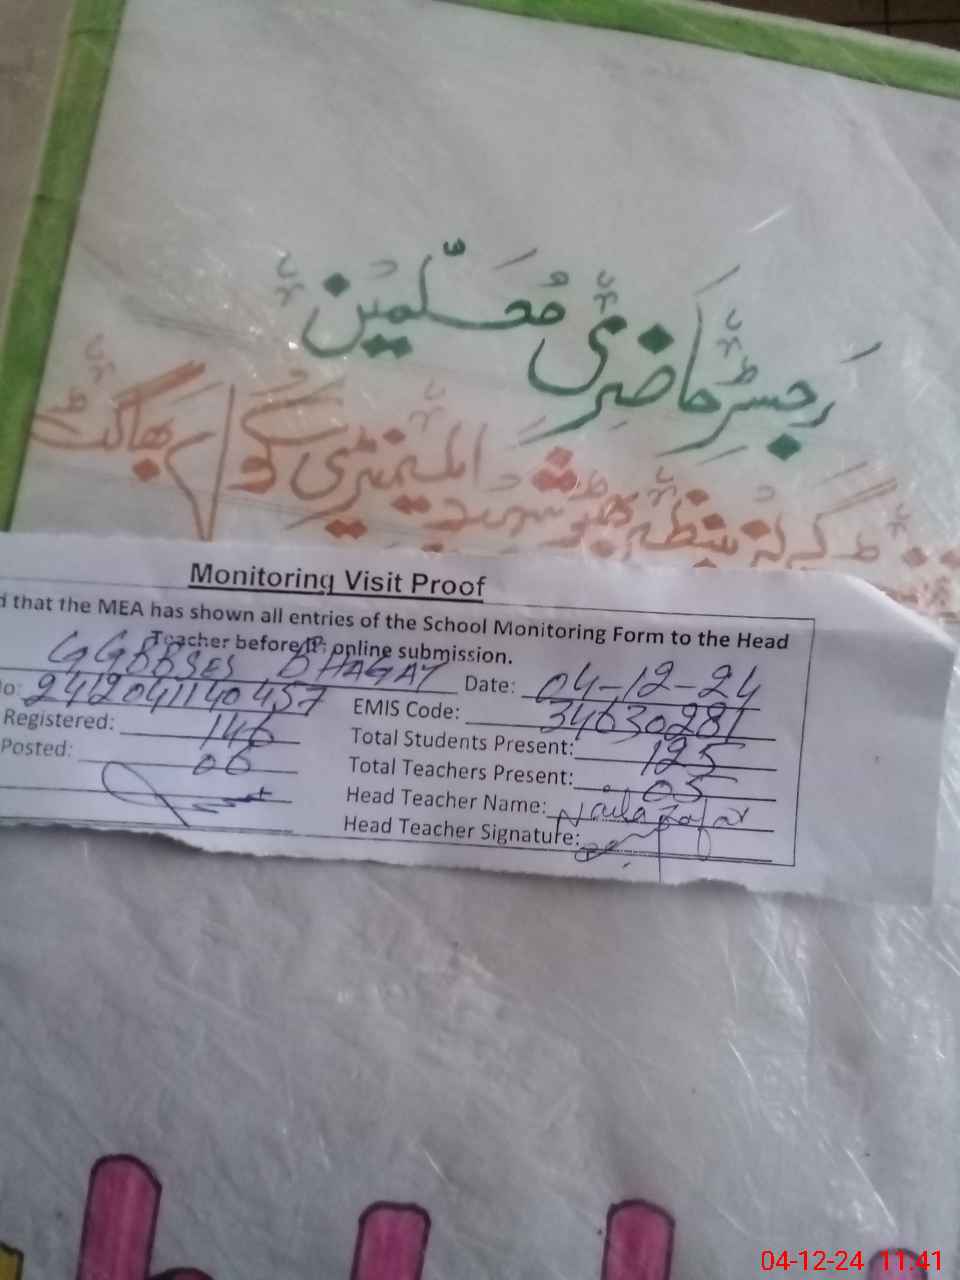 رجسٹر حاضری معلمین
گورنمنٹ گرلز ایلیمنٹری سکول بھاگٹ
Monitoring Visit Proof
d that the MEA has shown all entries of the School Monitoring Form to the Head
Teacher before online submission.
BHAGAT Date: 04-12-24
No: 2412041140457 EMIS Code: 34630281
Registered: 146 Total Students Present: 125
Posted: 06 Total Teachers Present: 05
Head Teacher Name: Naila Zafar
Head Teacher Signature:
04-12-24 11:41